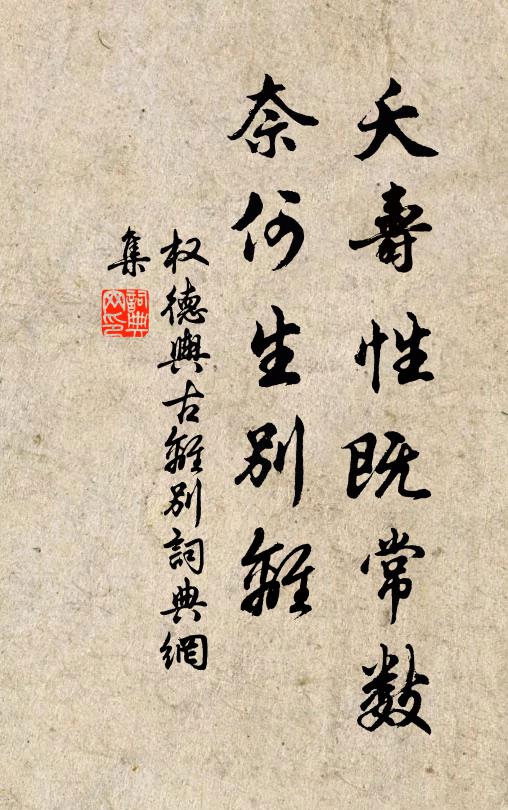 夭壽性既常數
奈何生別離
权德輿古離別詞典網
集
詞典网印